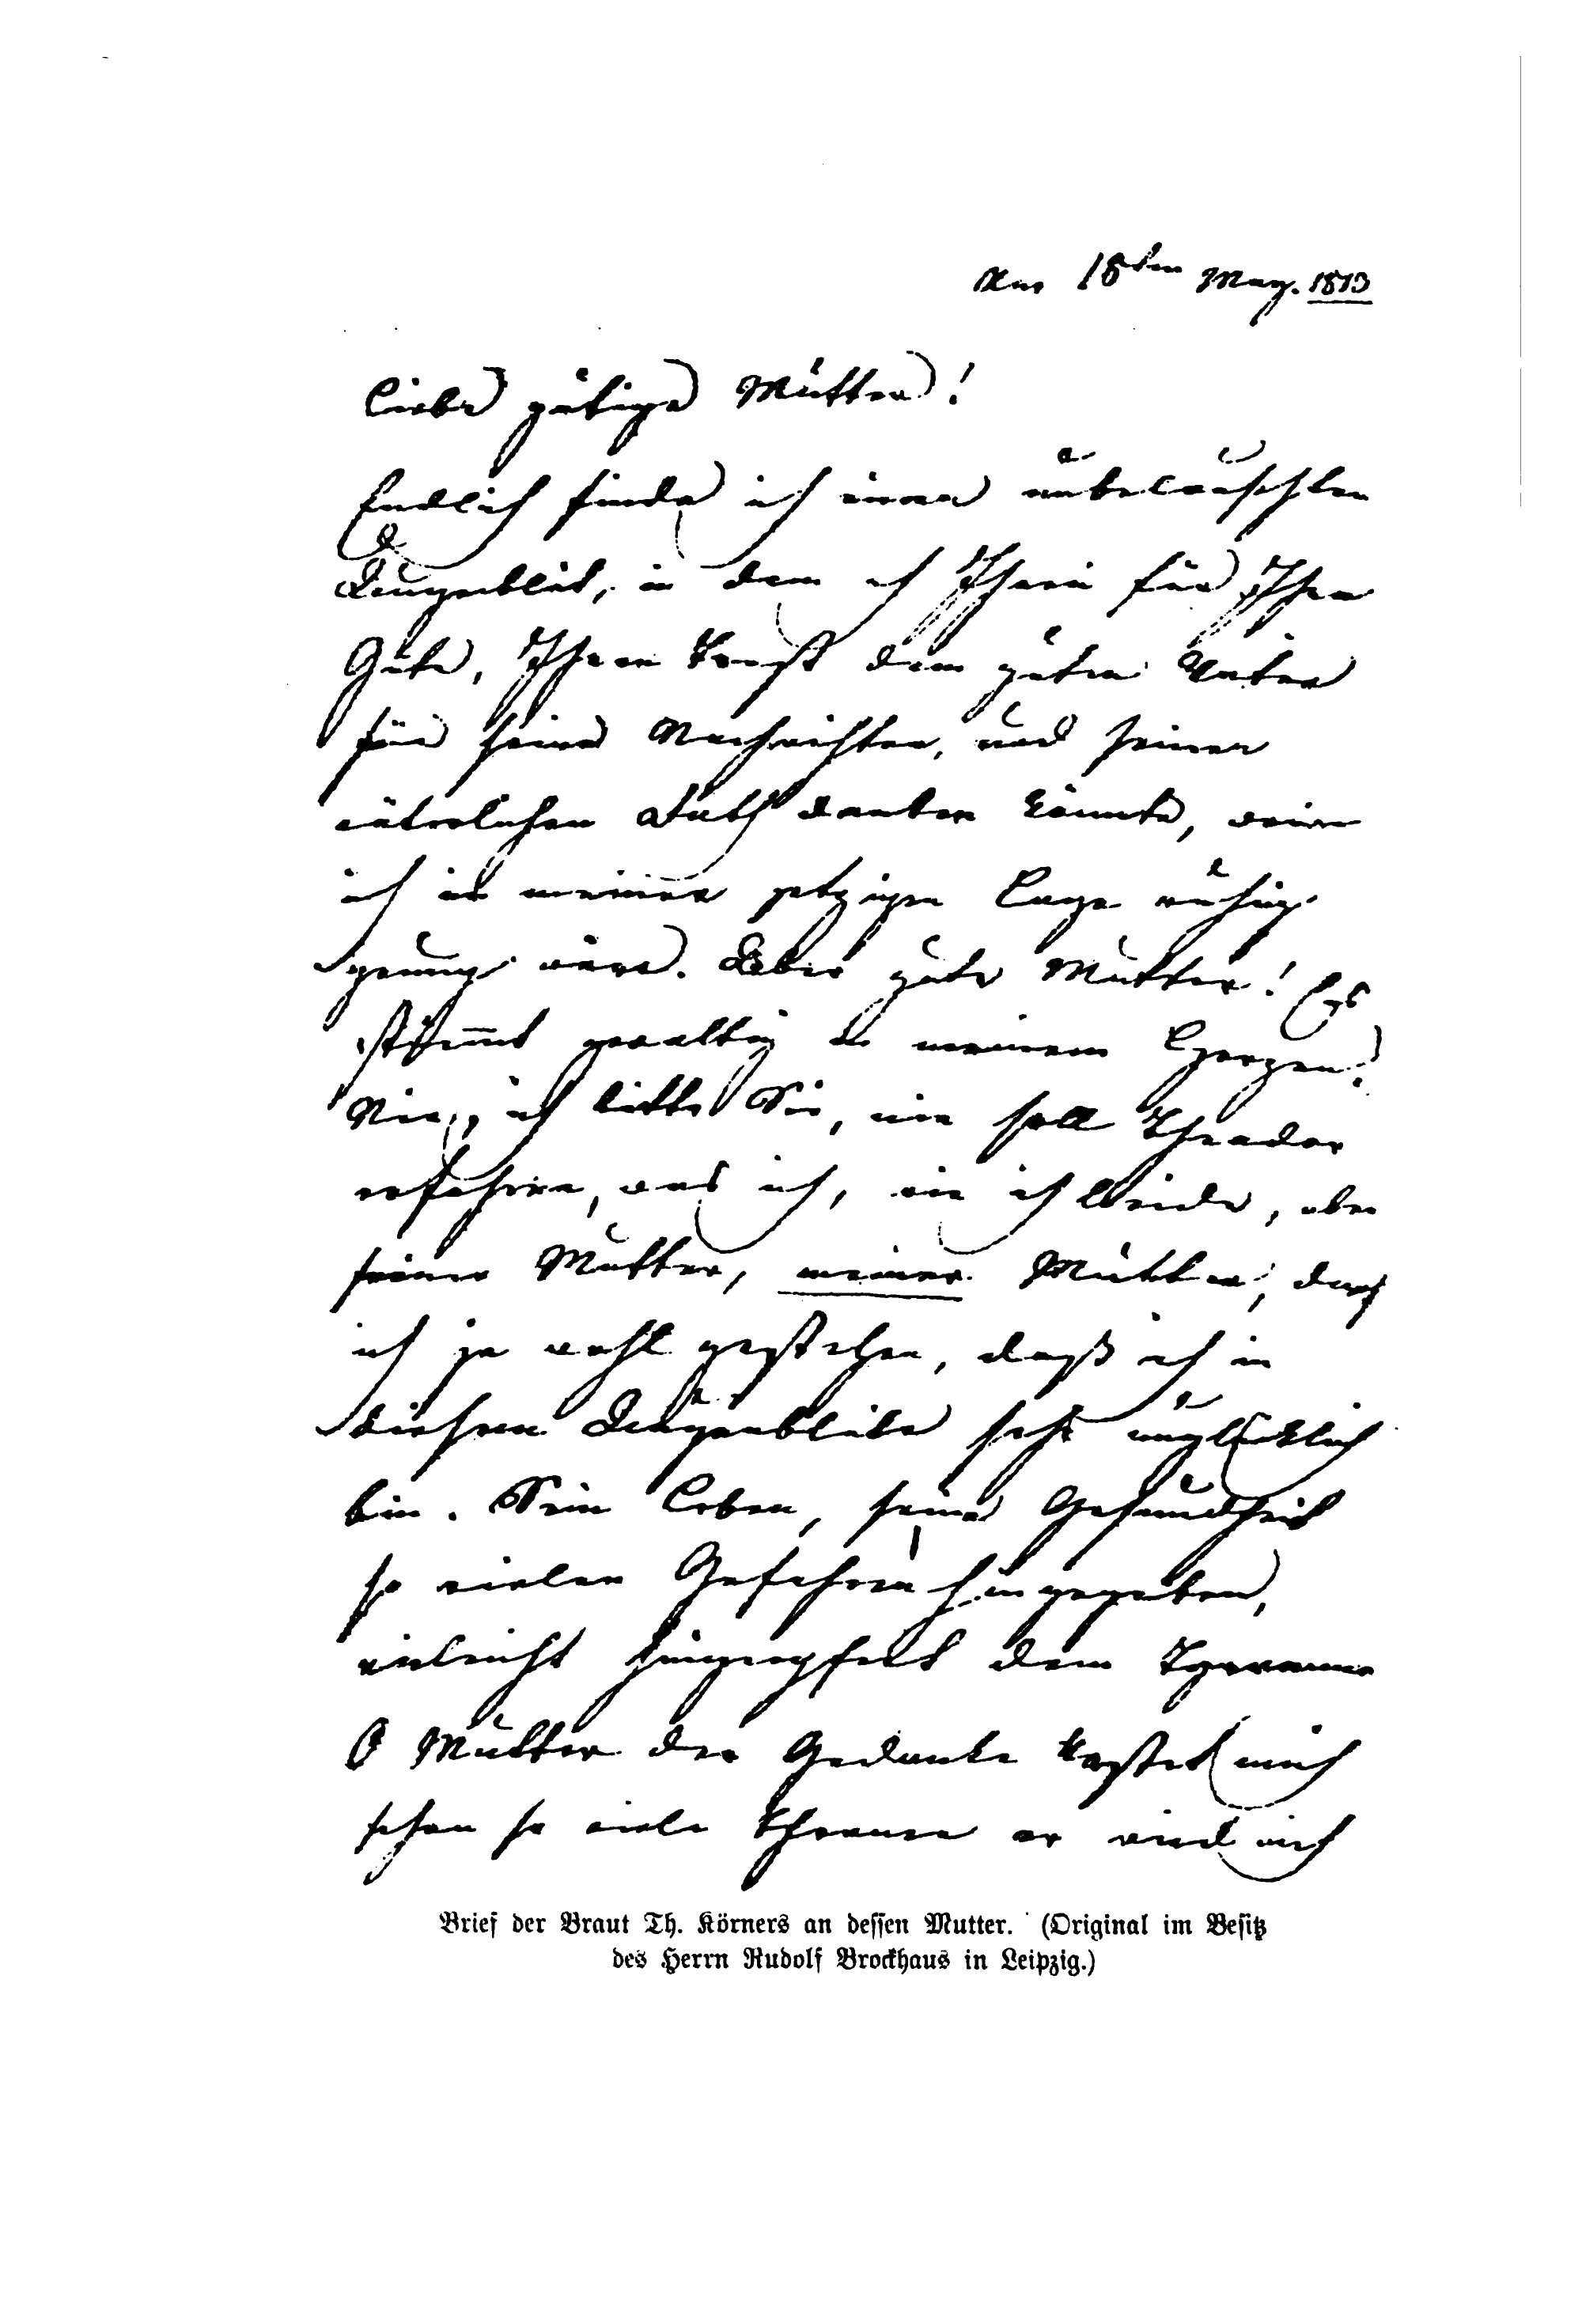 Am 18ten May. 1813
Liebe gütige Mutter!
Endlich finde ich einen unbelauschten
Augenblick, in dem ich Ihnen für Ihre
Güte, Ihren Trost dem guten Vater
für seine Nachrichten, und seinen
väterlichen Rath danken könnte, wenn
ich in meiner jetzigen Lage ruhig
genung wäre. Aber gute Mutter! Es
stürmt gewaltig in meinem Herzen.
Nie, ich bitte Sie, nie soll Theodor
erfahren, was ich, wie ich leide, aber
seiner Mutter, meiner Mutter, darf
ich ja wohl gestehen, daß ich in
diesem Augenblicke sehr unglücklich
bin. Sein Leben, seine Gesundheit
so vielen Gefahren hingegeben,
vieleicht hingeopfert dem Tyrannen
O Mutter der Gedanke kostet mich
schon so viele Thränen er wird mich
Brief der Braut Th. Körners an dessen Mutter. (Original im Besitz
des Herrn Rudolf Brockhaus in Leipzig.)